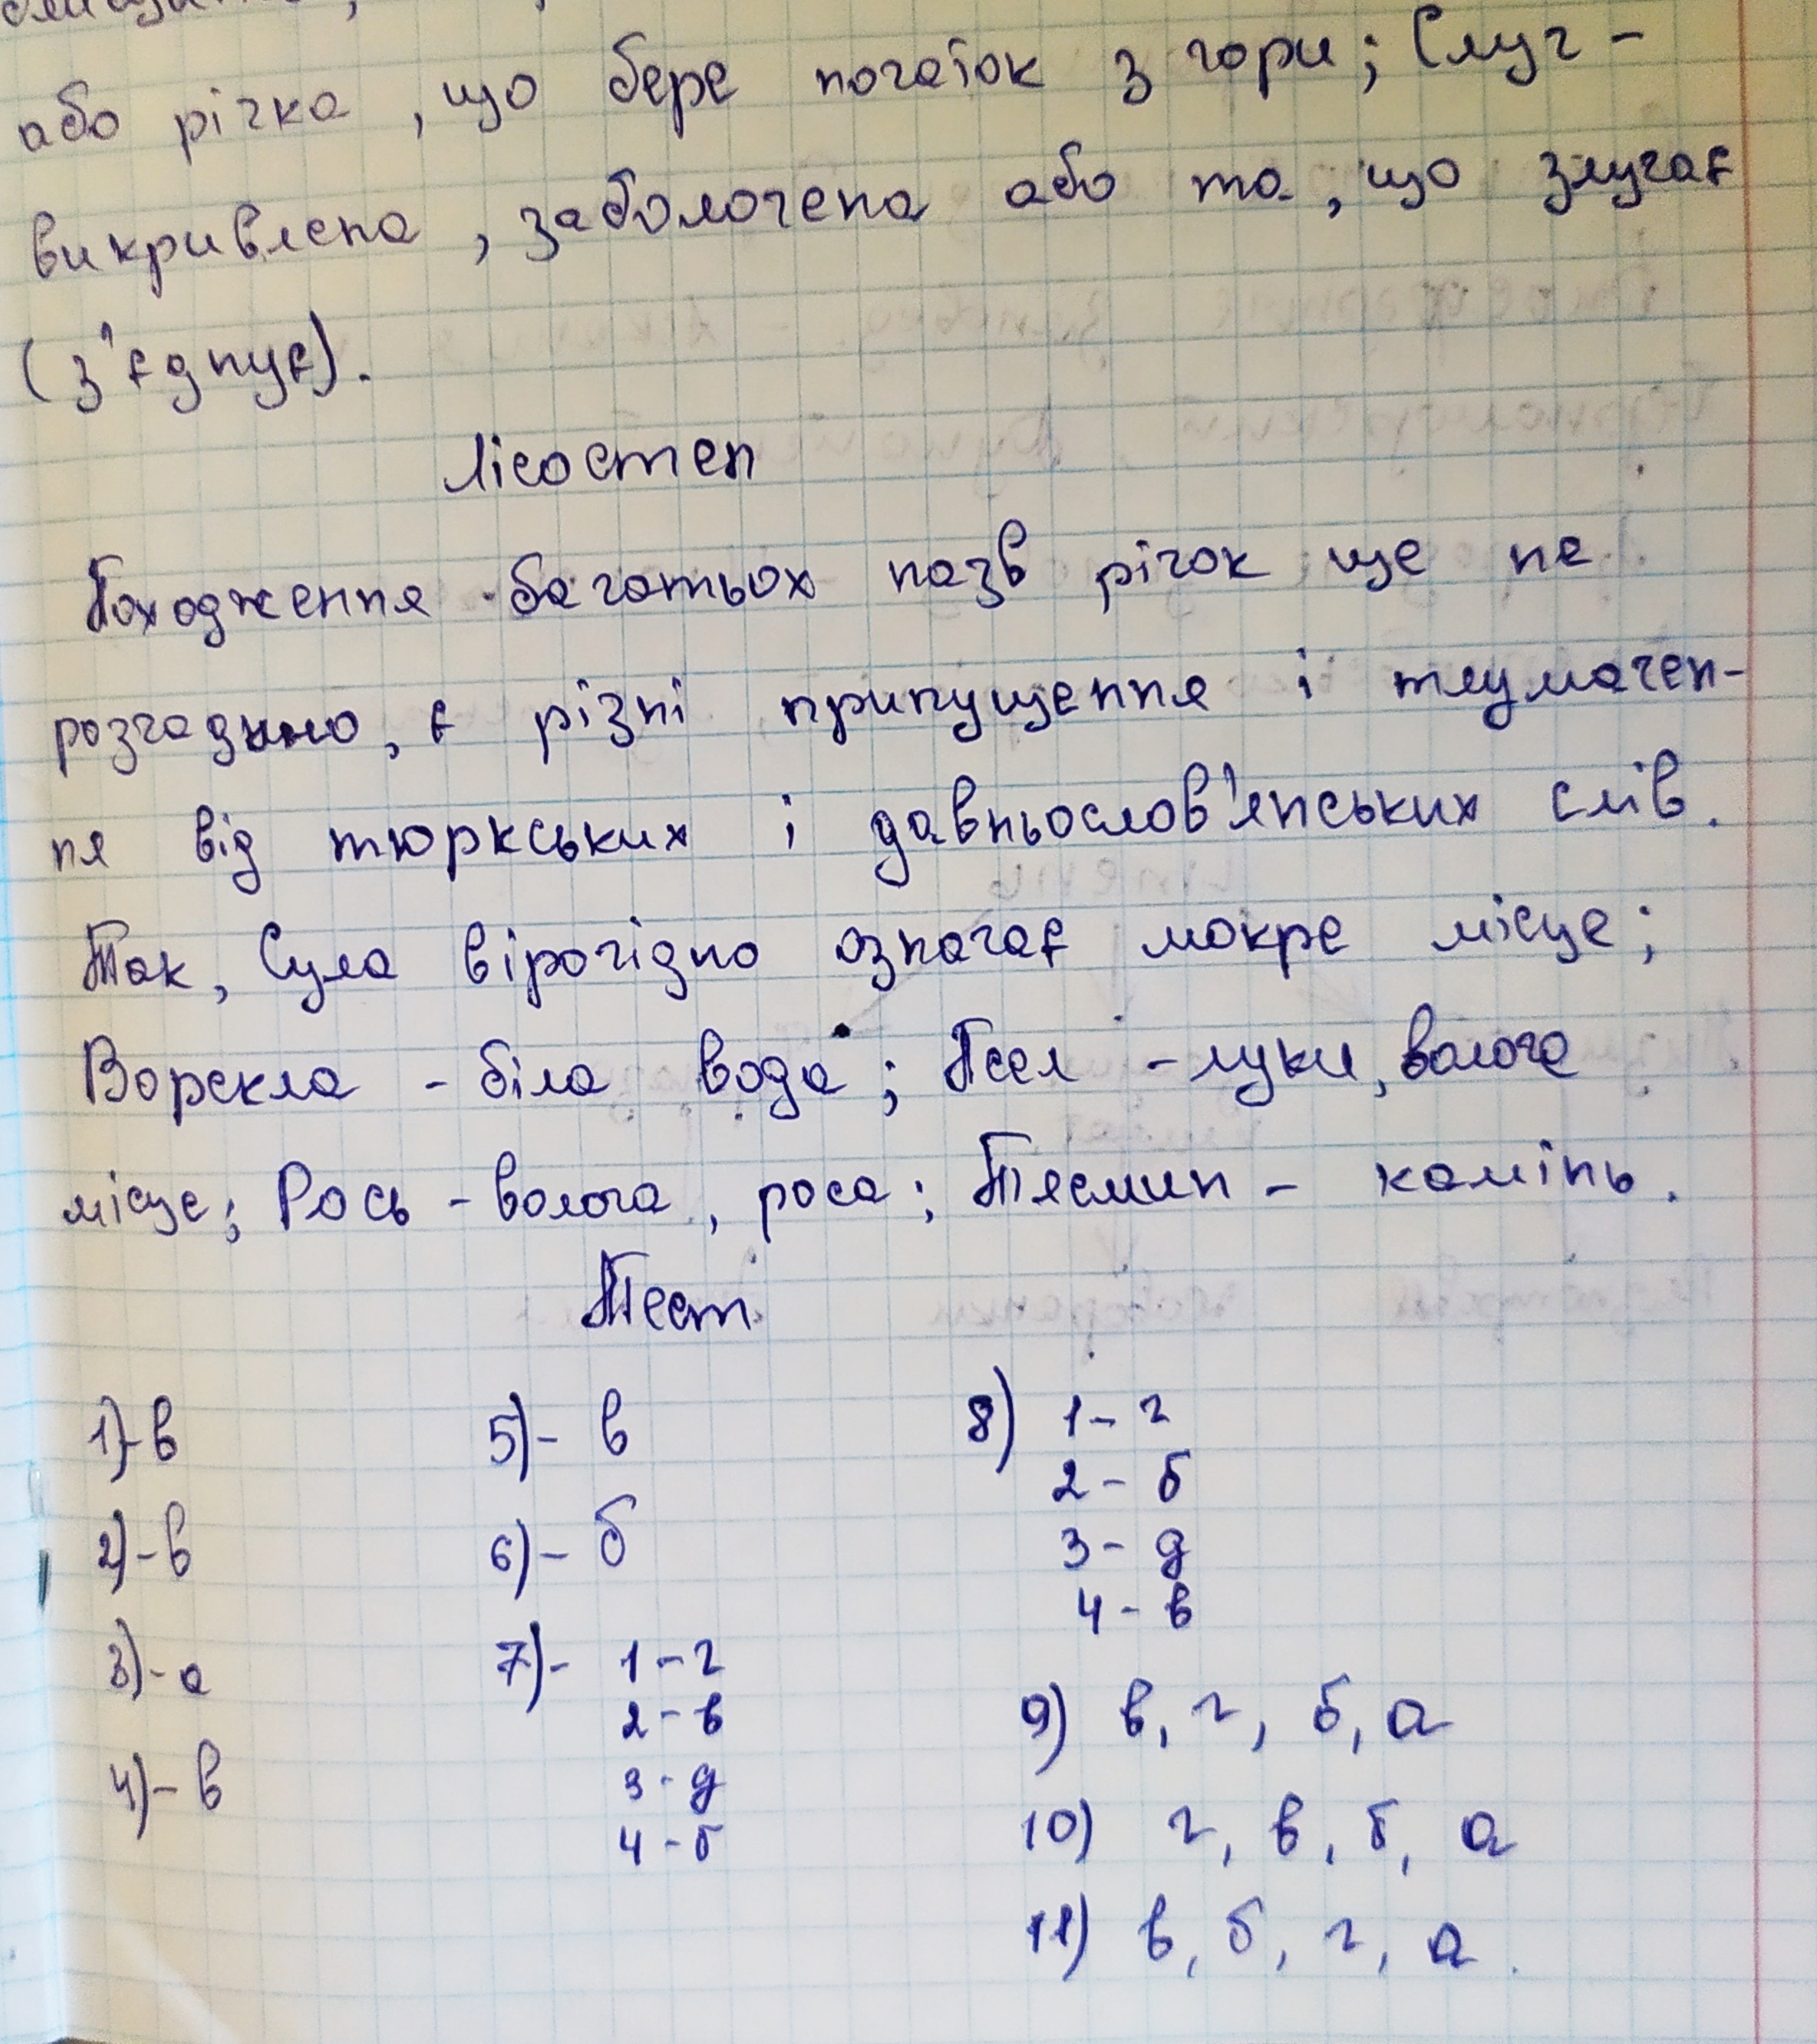 або річка, що бере початок з гори; Случ -
викривлена, заболочена або та, що злучає
(з'єднує).
Лісостеп
Походження багатьох назв річок ще не
розгадано, є різні припущення і тлумачен-
ня від тюркських і давньослов'янських слів.
Так, Сула вірогідно означає мокре місце;
Ворскла - біла вода; Псел - луки, вологе
місце; Рось - волога, роса; Тясмин - камінь.
Тест
1)-в 5)- в 8) 1- г
2 - б
2)-в 6)- б 3- д
4 - в
3)-а 7)- 1 - г
2 - в 9) в, г, б, а
4)-в 3 - д
4 - б 10) г, в, б, а
11) в, б, г, а.